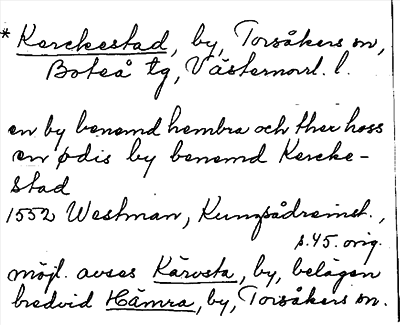 * Kerckestad, by, Torsåkers sn,
Boteå tg, Västernorrl. l.
en by benemd hembra och ther hoss
en ödis by benemd Kercke-
stad
1552 Westman, Kungsådreinst.,
s. 45. orig.
möjl. avses Kärvsta, by, belägen
bredvid Hämra, by, Torsåkers sn.